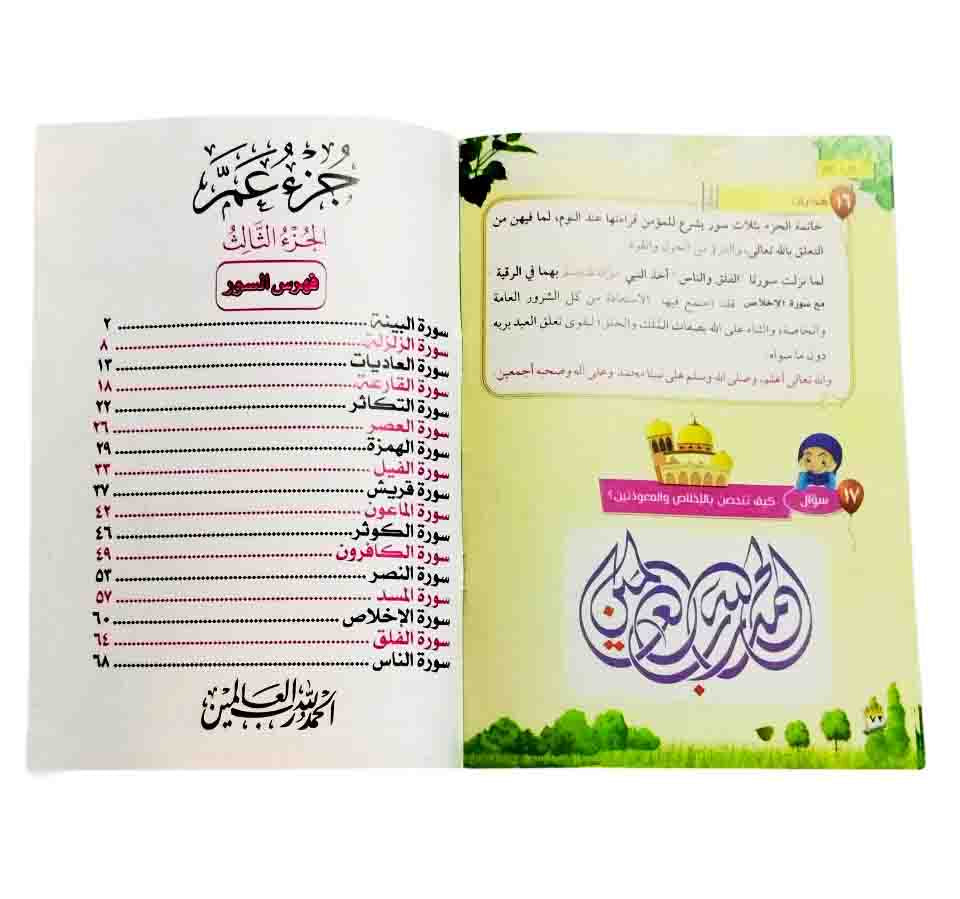 جُزْءُ عَمَّ
الجُزْءُ الثَّالِثُ
فهرس السور
سورة البينة ........ ٢
سورة الزلزلة ........ ٨
سورة العاديات ........ ١٣
سورة القارعة ........ ١٨
سورة التكاثر ........ ٢٢
سورة العصر ........ ٢٦
سورة الهمزة ........ ٢٩
سورة الفيل ........ ٣٣
سورة قريش ........ ٣٧
سورة الماعون ........ ٤٢
سورة الكوثر ........ ٤٦
سورة الكافرون ........ ٤٩
سورة النصر ........ ٥٣
سورة المسد ........ ٥٧
سورة الإخلاص ........ ٦٠
سورة الفلق ........ ٦٤
سورة الناس ........ ٦٨
الحمد لله رب العالمين
١٦ هدايات
خاتمة الجزء بثلاث سور يشرع للمؤمن قراءتها عند النوم، لما فيهن من
التعلق بالله تعالى، والتبرؤ من الحول والقوة.
لما نزلت سورتا "الفلق والناس" أخذ النبي بهما في الرقية
مع سورة الإخلاص فقد اجتمع فيها الاستعاذة من كل الشرور العامة
والخاصة، والثناء على الله بصفات الملك والخلق؛ ليقوى تعلق العبد بربه
دون ما سواه.
والله تعالى أعلم، وصلى الله وسلم على نبينا محمد وعلى آله وصحبه أجمعين.
١٧ سؤال كيف تتحصن بالإخلاص والمعوذتين؟
الحمد لله رب العالمين
٧٢